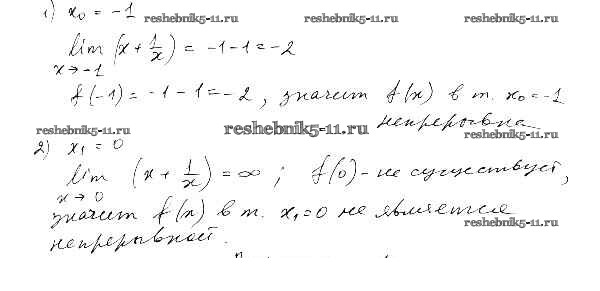 1) x₀ = -1
reshebnik5-11.ru reshebnik5-11.ru reshebnik5-11.ru
lim (x + 1/x) = -1-1 = -2
x→-1
f(-1) = -1-1 = -2, значит f(x) в т. x₀ = -1
непрерывна
reshebnik5-11.ru reshebnik5-11.ru reshebnik5-11.ru
2) x₁ = 0
lim (x + 1/x) = ∞ ; f(0) - не существует,
x→0
значит f(x) в т. x₁ = 0 не является
reshebnik5-11.ru
непрерывной.